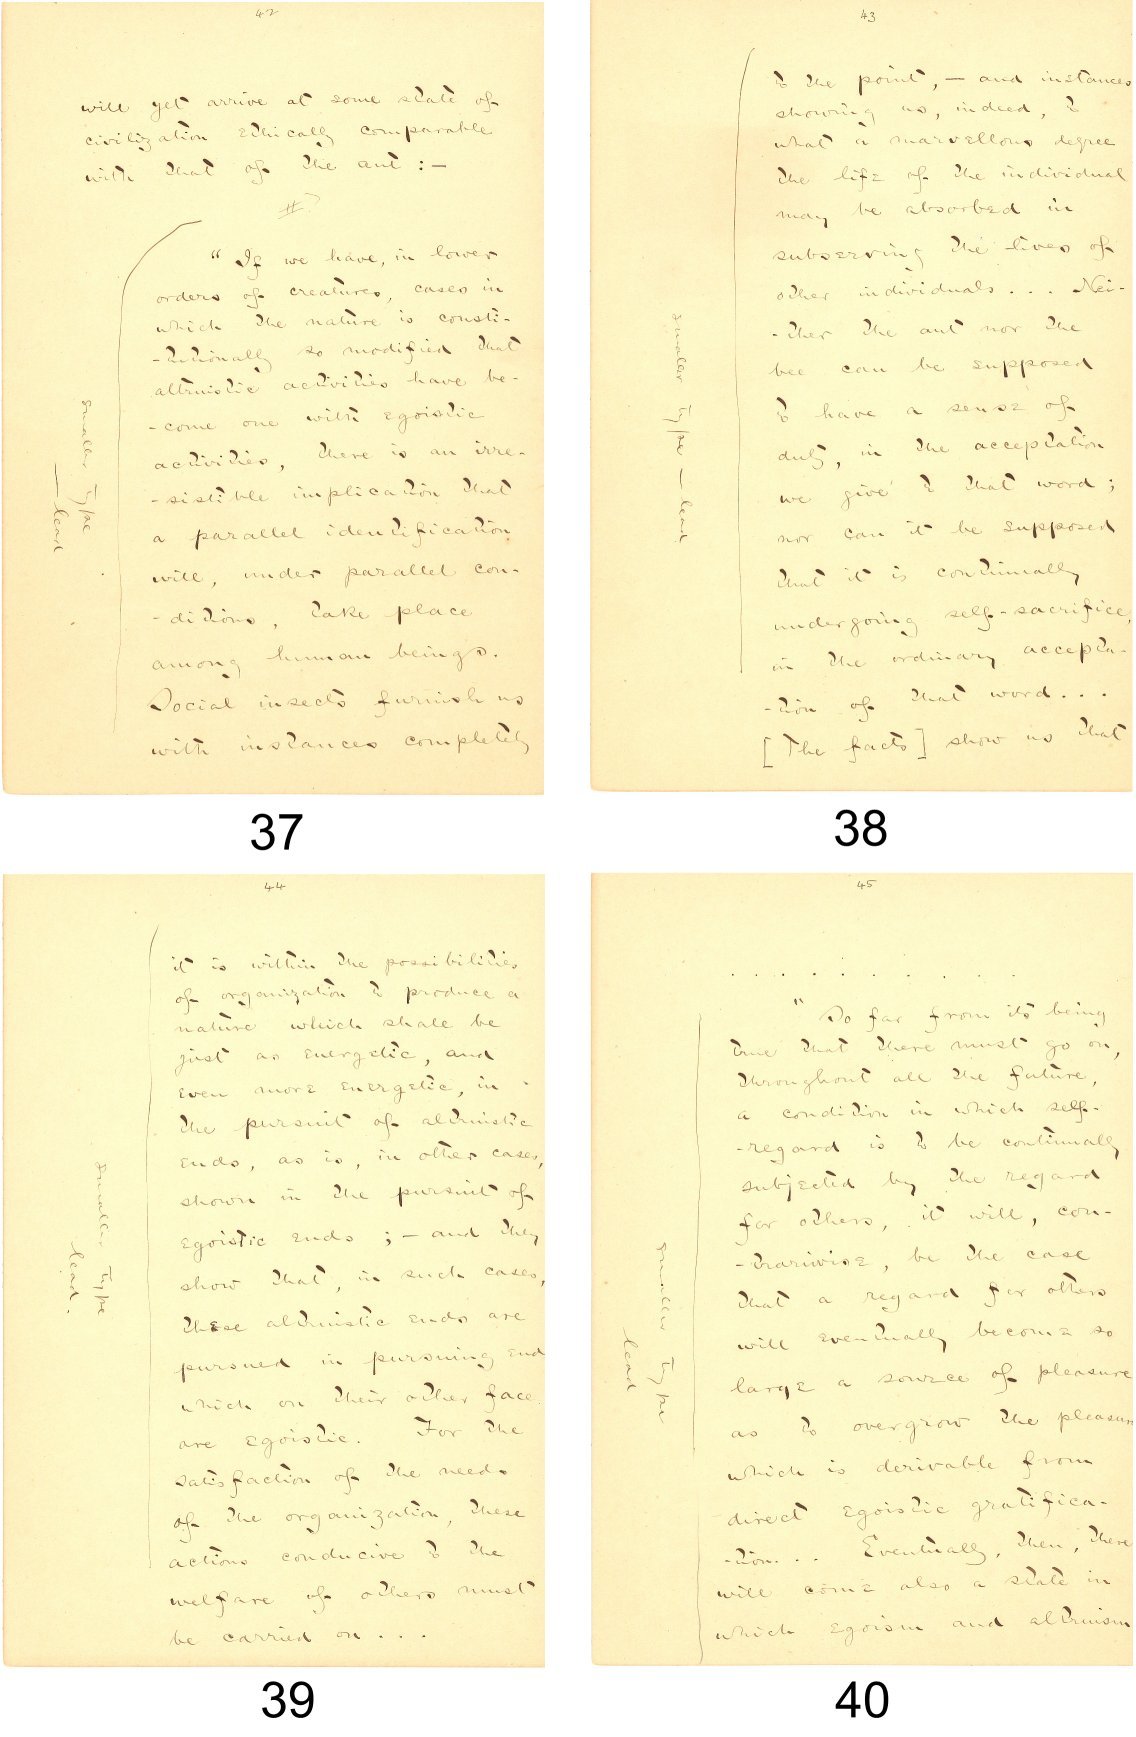 42
will yet arrive at some state of
civilization ethically comparable
with that of the ant : —
#
" If we have, in lower
orders of creatures, cases in
which the nature is consti-
-tutionally so modified that
altruistic activities have be-
-come one with egoistic
activities, there is an irre-
-sistible implication that
a parallel identification
will, under parallel con-
-ditions, take place
among human beings.
Social insects furnish us
with instances completely
smaller type
— lead
37
43
to the point, — and instances
showing us, indeed, to
what a marvellous degree
the life of the individual
may be absorbed in
subserving the lives of
other individuals . . . Nei-
-ther the ant nor the
bee can be supposed
to have a sense of
duty, in the acceptation
we give to that word ;
nor can it be supposed
that it is continually
undergoing self-sacrifice,
in the ordinary accepta-
-tion of that word . . .
[The facts] show us that
smaller type — lead
38
44
it is within the possibilities
of organization to produce a
nature which shall be
just as energetic, and
even more energetic, in
the pursuit of altruistic
ends, as is, in other cases,
shown in the pursuit of
egoistic ends ; — and they
show that, in such cases,
these altruistic ends are
pursued in pursuing end
which on their other face
are egoistic. For the
satisfaction of the needs
of the organization, these
actions conducive to the
welfare of others must
be carried on . . .
smaller type
lead.
39
45
. . . . . . . . . .
" So far from its being
true that there must go on,
throughout all the future,
a condition in which self-
-regard is to be continually
subjected by the regard
for others, it will, con-
-trariwise, be the case
that a regard for others
will eventually become so
large a source of pleasure
as to overgrow the pleasure
which is derivable from
direct egoistic gratifica-
-tion . . . Eventually, then, there
will come also a state in
which egoism and altruism
smaller type
lead
40